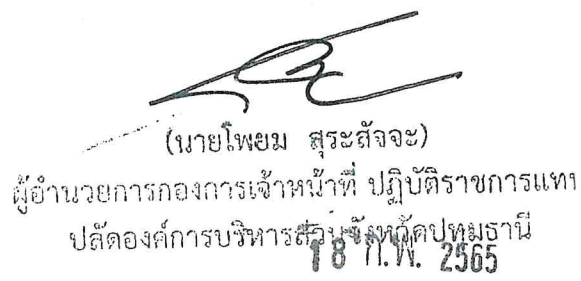 (นายโพยม สุระสัจจะ)
ผู้อำนวยการกองการเจ้าหน้าที่ ปฏิบัติราชการแทน
ปลัดองค์การบริหารส่วนจังหวัดปทุมธานี
18 ก.พ. 2565